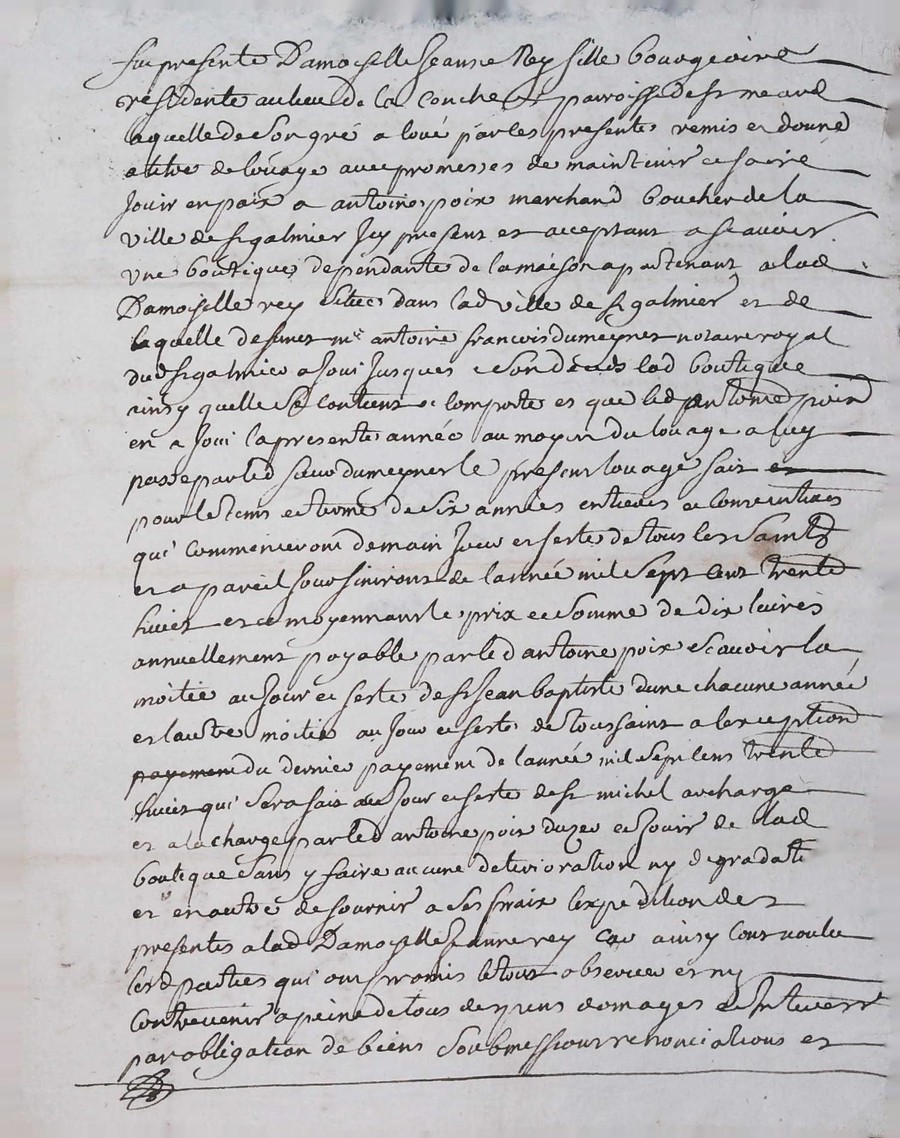 fut presente Damoiselle Jeanne Rey fille bourgeoise
residente au lieu de la Conche parroisse de st meard
laquelle de son gré a loué par les presentes remis et donné
a titre de loüage avec promesses de maintenir et faire
Jouir en paix a antoine poix marchand boucher de la
ville de st galmier Icy present et acceptant a scavoir
une boutique dependante de la maison apartenant a lad
Damoiselle rey sitüé dans lad ville de st galmier et de
laquelle deffunt me antoine francois dumeynet notaire royal
dud st galmier a Joui Jusques a son décés lad boutique
ainsy quelle se contient et comporte et que led antoine poix
en a Joui la presente année au moyen du loüage a luy
passé par led sieur dumeynet le present loüage fait et
pour le tems et terme de six années entieres et consecutives
qui commenceront demain Jour et feste de tous les Saints
et a pareil Jour finiront de l'année mil sept cent trente
huict et ce moyennant le prix et somme de dix livres
annuellement payable par led antoine poix scavoir la
moitié au Jour et feste de st Jean baptiste d'une chacune année
et lautre moitié au Jour et feste de toussaint a lexception
payement du dernier payement de l'année mil sept cens trente
huict qui sera fait au Jour et feste de st michel archange
et a la charge par led antoine poix duzer et Jouir de lad
boutique sans y faire aucune deterioration ny degradati
et en outre de fournir a ses fraix l'expedition des
presentes a lad Damoyselle Jeanne rey car ainsy l'ont voulu
lesd parties qui ont promis le tout observer et ny
contrevenir a peine de tous depens domages et Interest
par obligation de biens soubmissions renonciations et